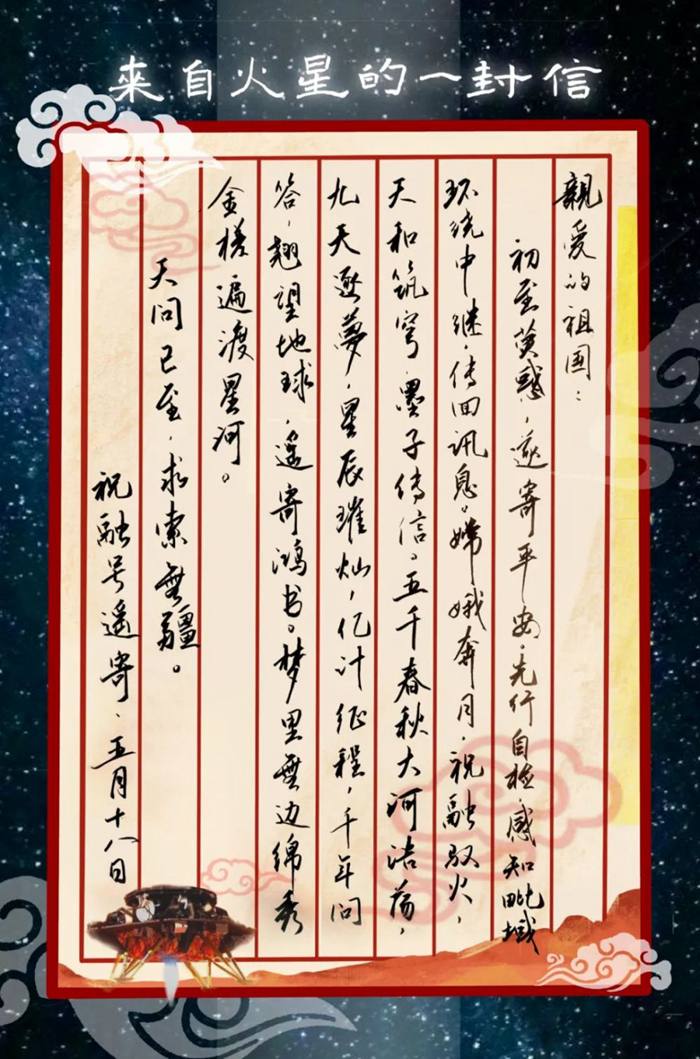 來自火星的一封信
親爱的祖国：
初至荧惑，遥寄平安。先行自检，感知毗域
环绕中继，传回讯息。嫦娥奔月，祝融驭火，
天和筑穹，墨子传信。五千春秋大河浩荡，
九天逐夢，星辰璀灿，亿计征程，千年问
答，翘望地球，遥寄鸿书。梦里無边绵秀
金槎遍渡星河。
天问已至，求索無疆。
祝融号遥寄、五月十八日